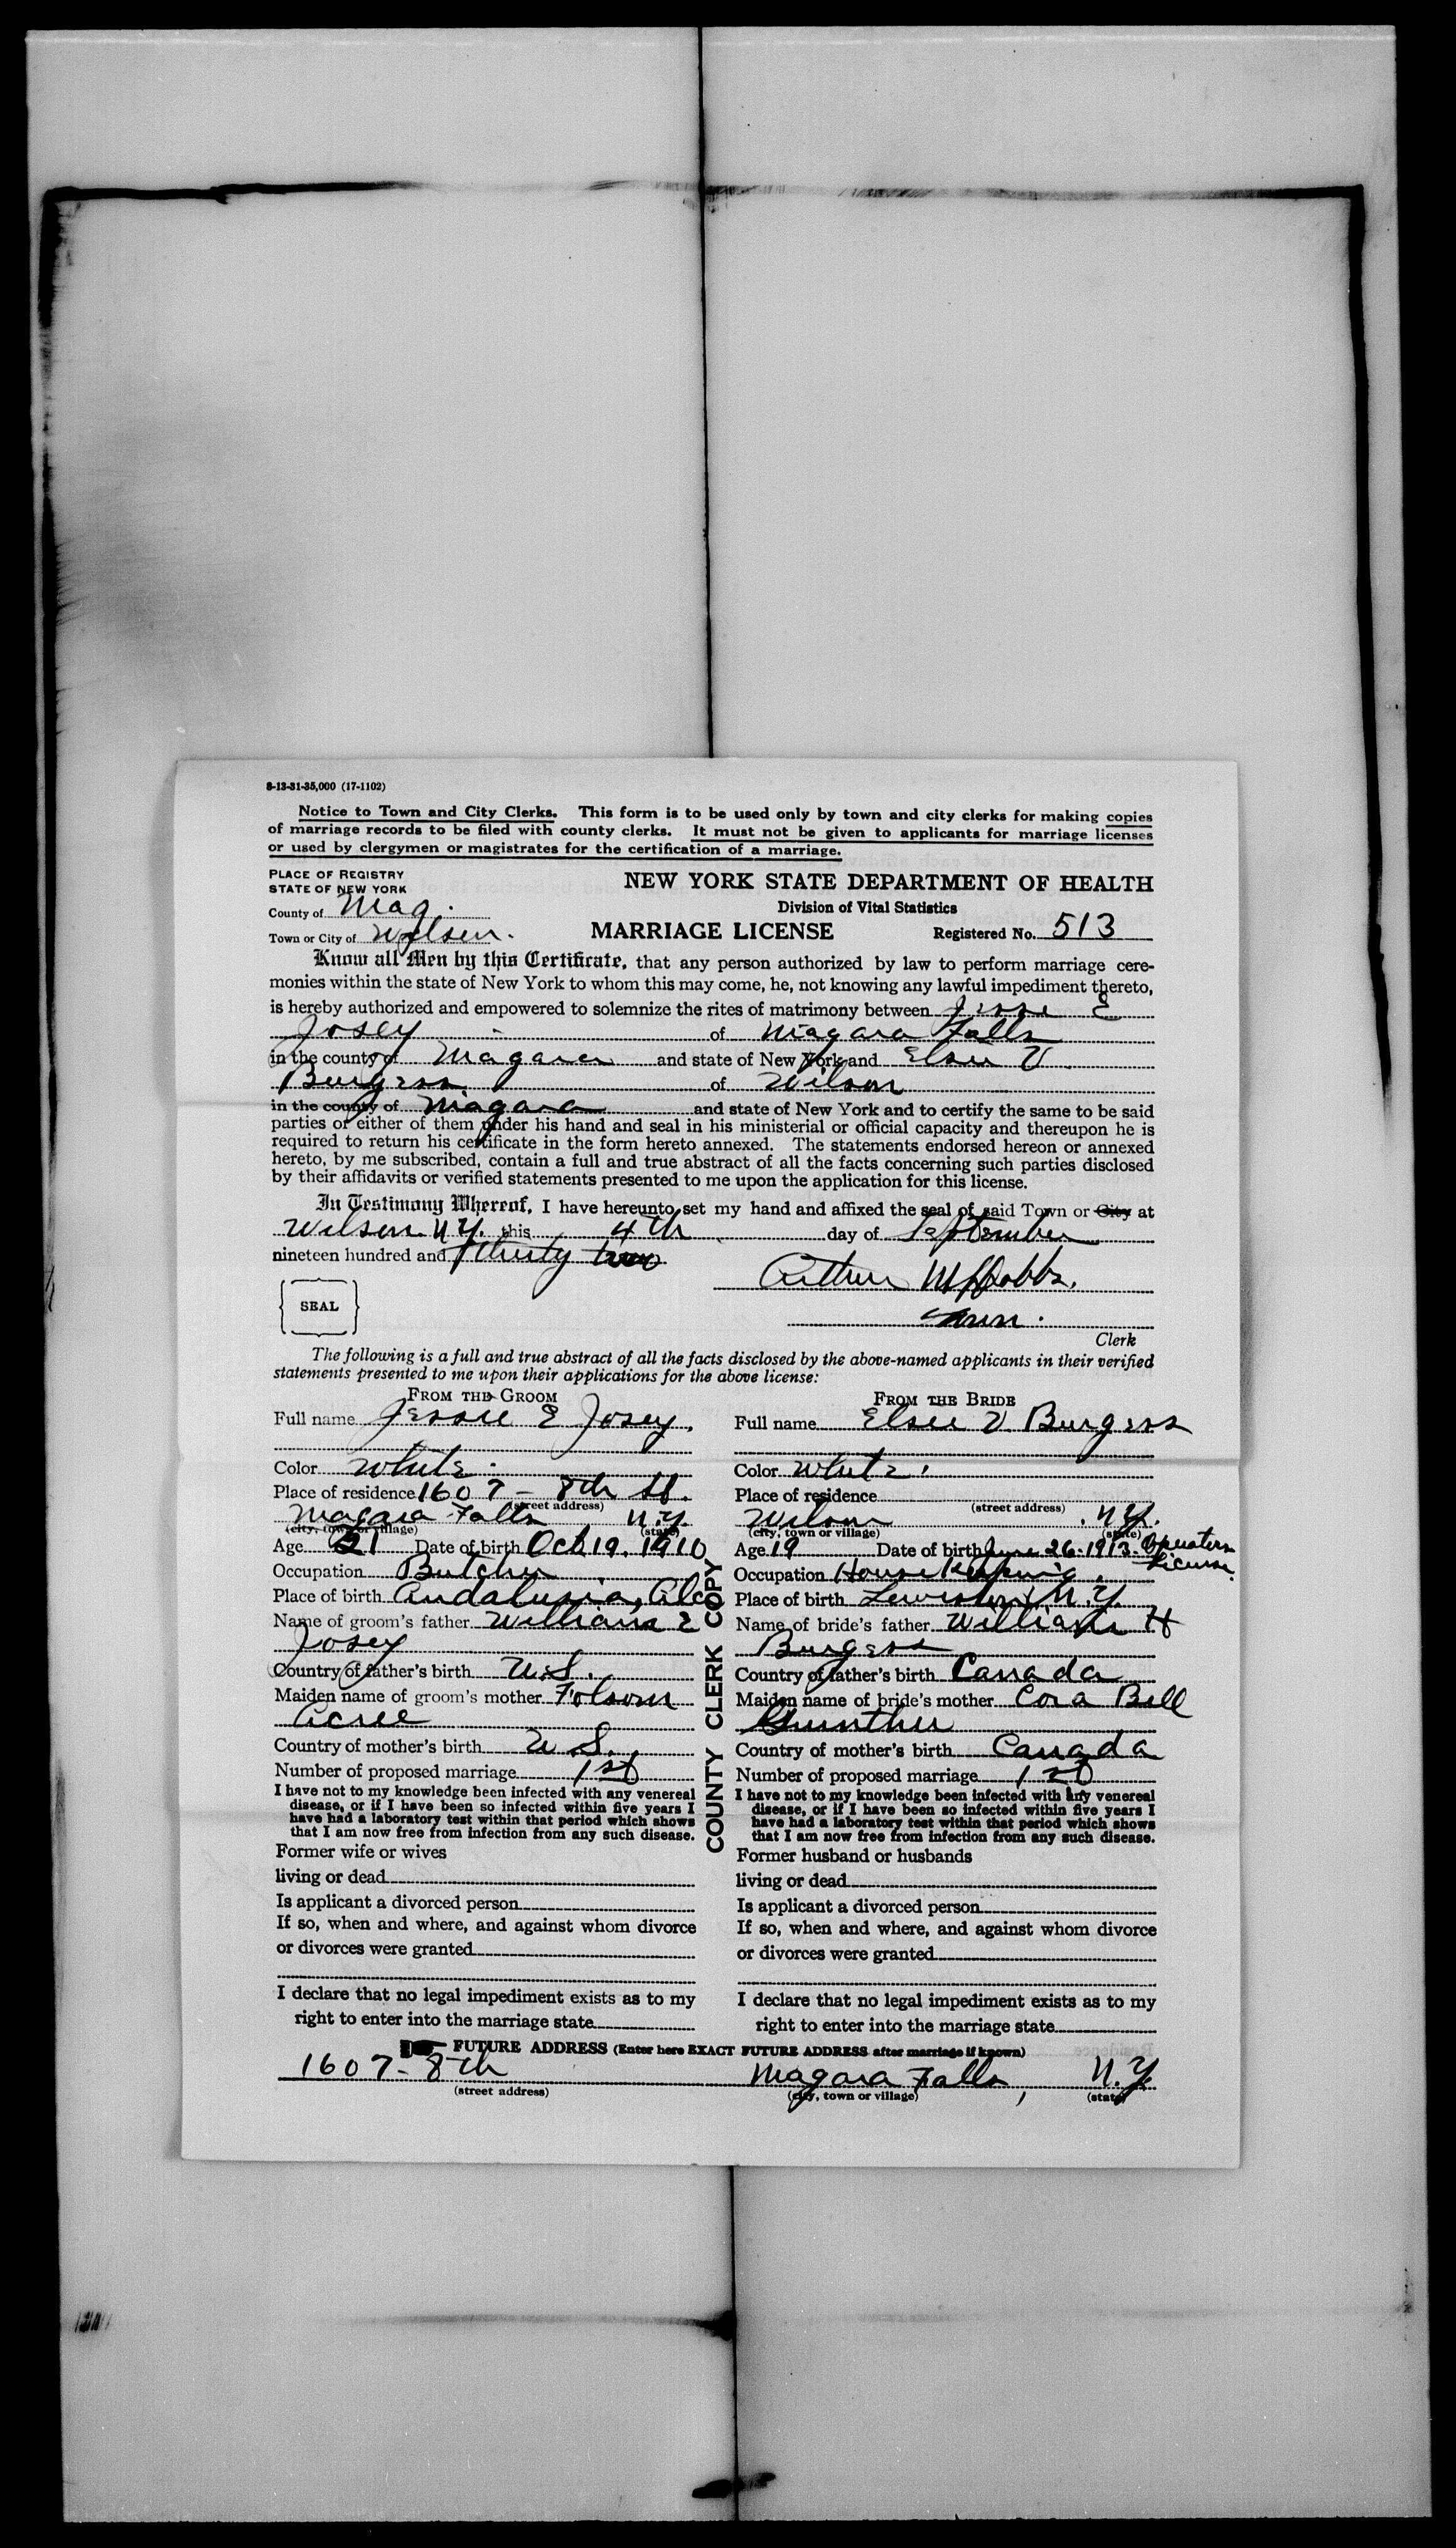 8-13-31-35,000 (17-1102)
Notice to Town and City Clerks. This form is to be used only by town and city clerks for making copies
of marriage records to be filed with county clerks. It must not be given to applicants for marriage licenses
or used by clergymen or magistrates for the certification of a marriage.
PLACE OF REGISTRY
STATE OF NEW YORK
County of Niag.
Town or City of Wilson.
NEW YORK STATE DEPARTMENT OF HEALTH
Division of Vital Statistics
MARRIAGE LICENSE Registered No. 513
Know all Men by this Certificate, that any person authorized by law to perform marriage cere-
monies within the state of New York to whom this may come, he, not knowing any lawful impediment thereto,
is hereby authorized and empowered to solemnize the rites of matrimony between Jesse E
Josey of Niagara Falls
in the county of Niagara and state of New York and Elsie V
Burgess of Wilson
in the county of Niagara and state of New York and to certify the same to be said
parties or either of them under his hand and seal in his ministerial or official capacity and thereupon he is
required to return his certificate in the form hereto annexed. The statements endorsed hereon or annexed
hereto, by me subscribed, contain a full and true abstract of all the facts concerning such parties disclosed
by their affidavits or verified statements presented to me upon the application for this license.
In Testimony Whereof, I have hereunto set my hand and affixed the seal of said Town or City at
Wilson N.Y. this 4th day of September
nineteen hundred and thirty two
Arthur
SEAL
Town.
Clerk
The following is a full and true abstract of all the facts disclosed by the above-named applicants in their verified
statements presented to me upon their applications for the above license:
FROM THE GROOM
Full name Jessie E Josey.
Color White.
Place of residence 1607 - 8th St.
(street address)
Niagara Falls, N.Y.
(city, town or village) (state)
Age 21 Date of birth Oct 19. 1910
Occupation Butcher
Place of birth Andalusia, Ala
Name of groom's father William E
Josey
Country of father's birth U.S.
Maiden name of groom's mother Folsom
Acree
Country of mother's birth U.S.
Number of proposed marriage 1st
I have not to my knowledge been infected with any venereal
disease, or if I have been so infected within five years I
have had a laboratory test within that period which shows
that I am now free from infection from any such disease.
Former wife or wives
living or dead
Is applicant a divorced person
If so, when and where, and against whom divorce
or divorces were granted
I declare that no legal impediment exists as to my
right to enter into the marriage state
COUNTY CLERK COPY
FROM THE BRIDE
Full name Elsie V. Burgess
Color White.
Place of residence
(street address)
Wilson, N.Y.
(city, town or village) (state)
Age 19 Date of birth June 26. 1913. Operators
License.
Occupation House Keeping.
Place of birth Lewiston N.Y.
Name of bride's father William H
Burgess
Country of father's birth Canada
Maiden name of bride's mother Cora Bell
Gunther
Country of mother's birth Canada
Number of proposed marriage 1st
I have not to my knowledge been infected with any venereal
disease, or if I have been so infected within five years I
have had a laboratory test within that period which shows
that I am now free from infection from any such disease.
Former husband or husbands
living or dead
Is applicant a divorced person
If so, when and where, and against whom divorce
or divorces were granted
I declare that no legal impediment exists as to my
right to enter into the marriage state
FUTURE ADDRESS (Enter here EXACT FUTURE ADDRESS after marriage if known)
1607 - 8th Niagara Falls, N.Y.
(street address) (city, town or village) (state)